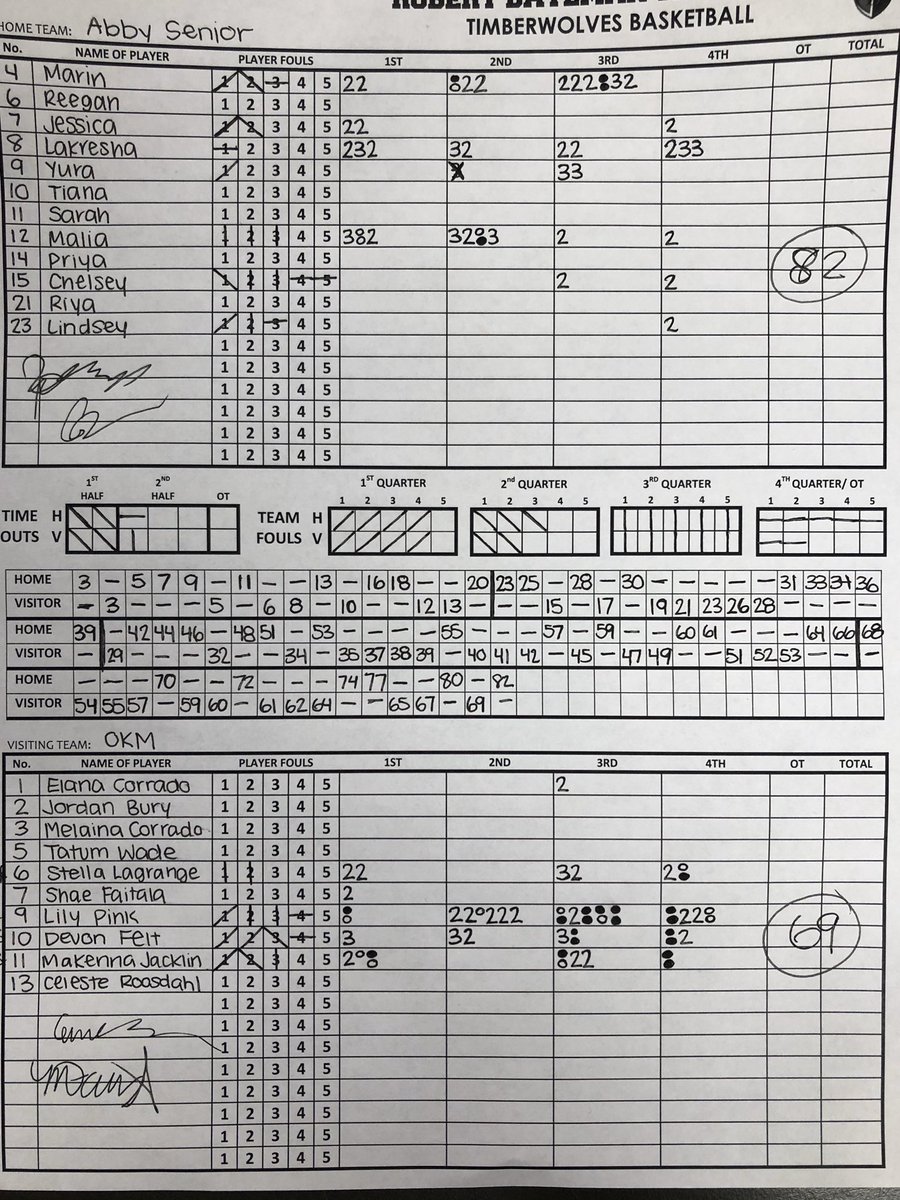 TIMBERWOLVES BASKETBALL
HOME TEAM: Abby Senior
No. NAME OF PLAYER PLAYER FOULS 1ST 2ND 3RD 4TH OT TOTAL
4 Marin 1 2 3 4 5 22 822 222832
6 Reegan 1 2 3 4 5
7 Jessica 1 2 3 4 5 22 2
8 Lakresha 1 2 3 4 5 232 32 22 233
9 Yura 1 2 3 4 5 33
10 Tiana 1 2 3 4 5
11 Sarah 1 2 3 4 5
12 Malia 1 2 3 4 5 382 3283 2 2
14 Priya 1 2 3 4 5
82
15 Chelsey 1 2 3 4 5 2 2
21 Riya 1 2 3 4 5
23 Lindsey 1 2 3 4 5 2
1 2 3 4 5
1 2 3 4 5
1 2 3 4 5
1 2 3 4 5
1 2 3 4 5
1 2 3 4 5
1ST HALF 2ND HALF OT
1ST QUARTER 2nd QUARTER 3RD QUARTER 4TH QUARTER/ OT
1 2 3 4 5 1 2 3 4 5 1 2 3 4 5 1 2 3 4 5
TIME H TEAM H
OUTS V FOULS V
HOME 3 – 5 7 9 – 11 – – 13 – 16 18 – – 20 23 25 – 28 – 30 – – – – – – 31 33 34 36
VISITOR – 3 – – – 5 – 6 8 – 10 – – 12 13 – – – 15 – 17 – 19 21 23 26 28 – – – –
HOME 39 – 42 44 46 – 48 51 – 53 – – – – 55 – – – 57 – 59 – – 60 61 – – – 64 66 68
VISITOR – 29 – – – 32 – – 34 – 35 37 38 39 – 40 41 42 – 45 – 47 49 – – 51 52 53 – – –
HOME – – – 70 – – 72 – – – 74 77 – – 80 – 82
VISITOR 54 55 57 – 59 60 – 61 62 64 – – 65 67 – 69 –
VISITING TEAM: OKM
No. NAME OF PLAYER PLAYER FOULS 1ST 2ND 3RD 4TH OT TOTAL
1 Elana Corrado 1 2 3 4 5 2
2 Jordan Bury 1 2 3 4 5
3 Melaina Corrado 1 2 3 4 5
5 Tatum Wade 1 2 3 4 5
6 Stella Lagrange 1 2 3 4 5 22 32 28
7 Shae Faitala 1 2 3 4 5 2
9 Lily Pink 1 2 3 4 5 8 22°222 82888 8228
10 Devon Felt 1 2 3 4 5 3 32 38 82
69
11 Makenna Jacklin 1 2 3 4 5 2°8 822 8
13 Celeste Roosdahl 1 2 3 4 5
1 2 3 4 5
1 2 3 4 5
1 2 3 4 5
1 2 3 4 5
1 2 3 4 5
1 2 3 4 5
1 2 3 4 5
1 2 3 4 5